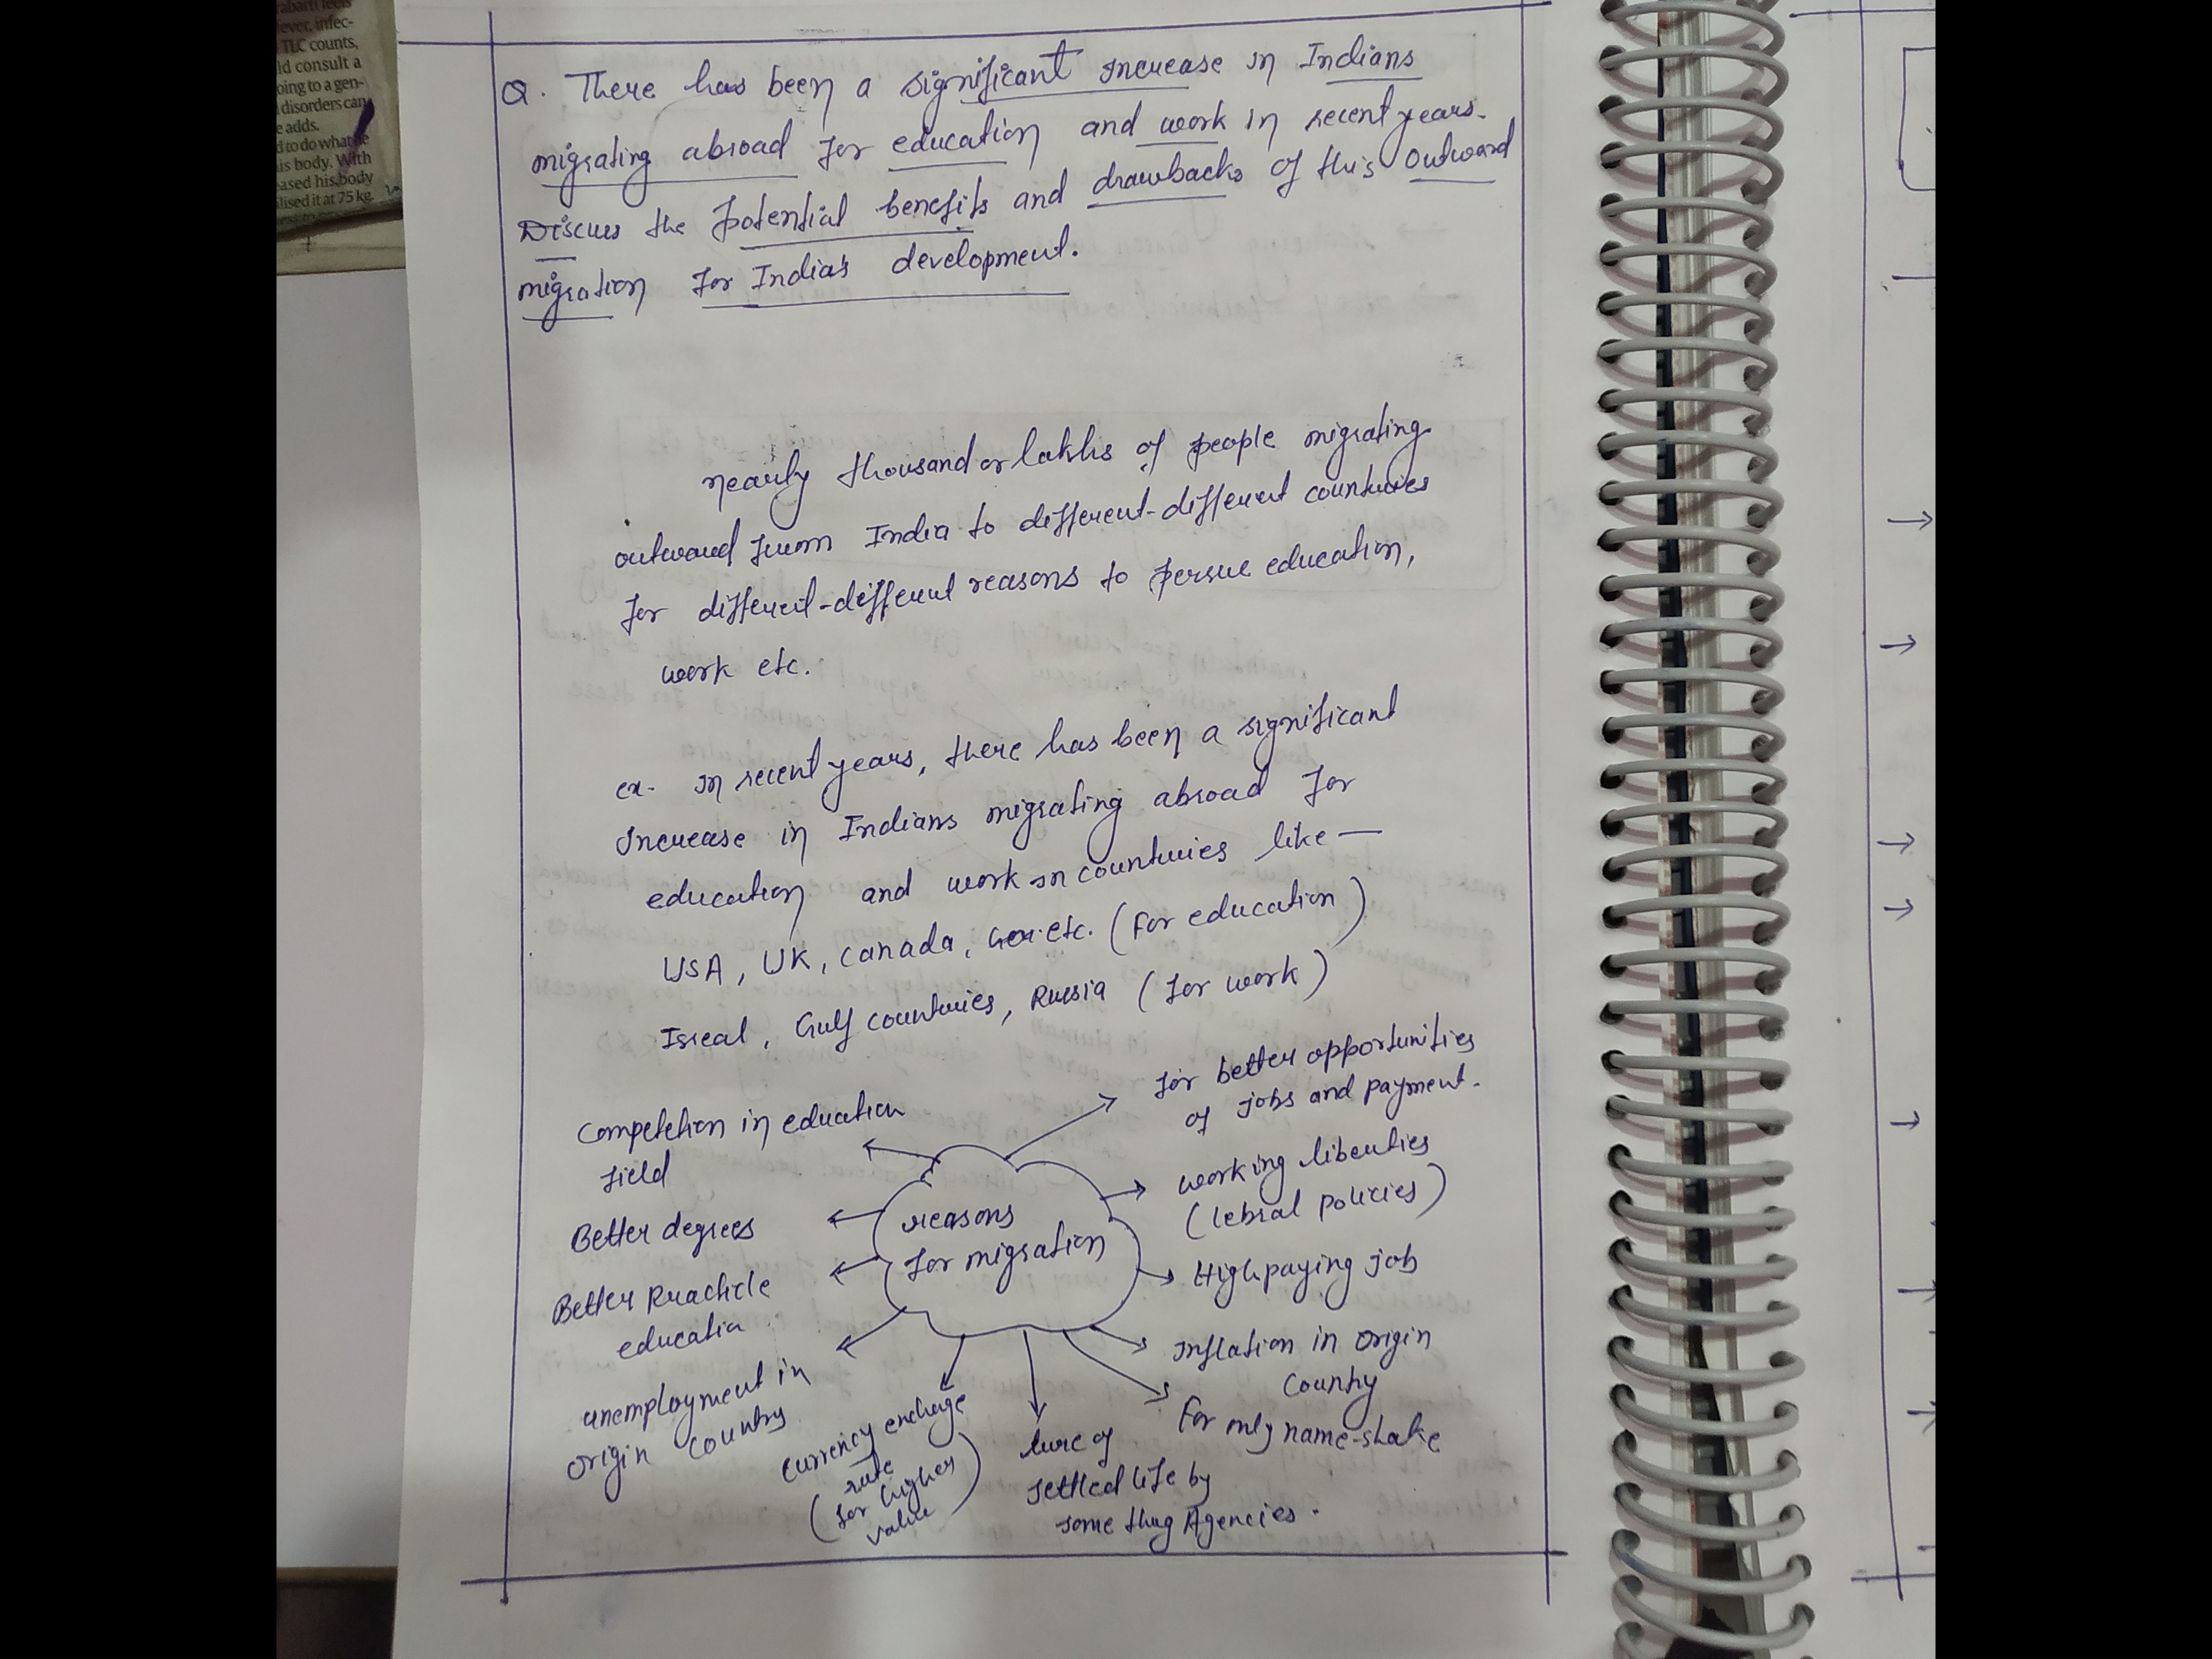 abarti feels
fever, infec-
TLC counts,
ld consult a
oing to a gen-
disorders can
e adds.
d to do what he
is body. With
ased his body
lised it at 75 kg.
Q. There has been a significant increase in Indians
migrating abroad for education and work in recent years.
Discuss the potential benefits and drawbacks of this outward
migration for India's development.
nearly thousand or lakhs of people migrating
outward from India to different-different countries
for different-different reasons to persue education,
work etc.
ex- in recent years, there has been a significant
increase in Indians migrating abroad for
education and work in countries like —
USA, UK, Canada, etc. (for education)
Isreal, Gulf countries, Russia (for work)
for better opportunities
of jobs and payment.
Competetion in education
field
working liberties
(lebral policies)
Better degrees
reasons
for migration
High paying job
Better Practicle
education
inflation in origin
country
unemployment in
origin country
For only name-shake
currency exchage
rate
(for higher
value)
lure of
settled life by
some thug Agencies.